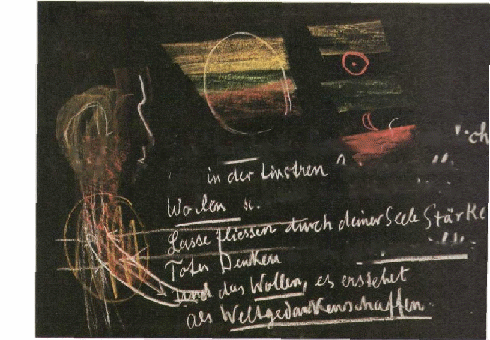 in der finstren
Wollen
Lasse fliessen durch deiner Seele Stärke
Totes Denken
Und das Wollen, es erstehet
als Weltgedankenschaffen.